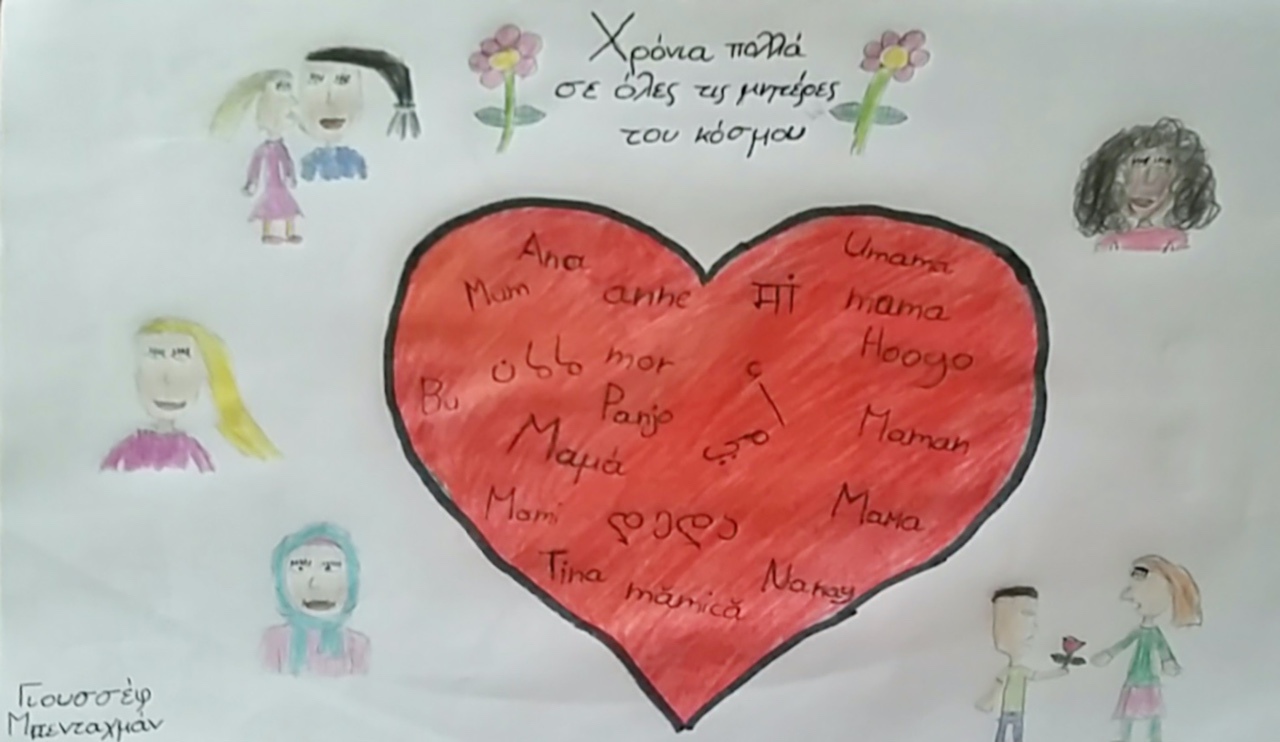 Χρόνια πολλά
σε όλες τις μητέρες
του κόσμου
Ana
Umama
Mum
anne
मां
mama
Hooyo
mor
Bu
Panjo
Μαμά
Maman
Mami
დედა
Мама
Tina
mămică
Nanay
Γιουσσέφ
Μπενταχμάν